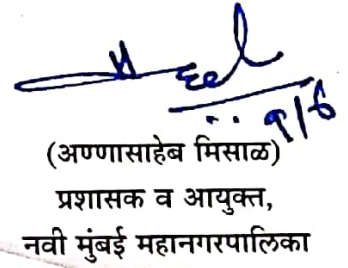 ९/६
(अण्णासाहेब मिसाळ)
प्रशासक व आयुक्त,
नवी मुंबई महानगरपालिका